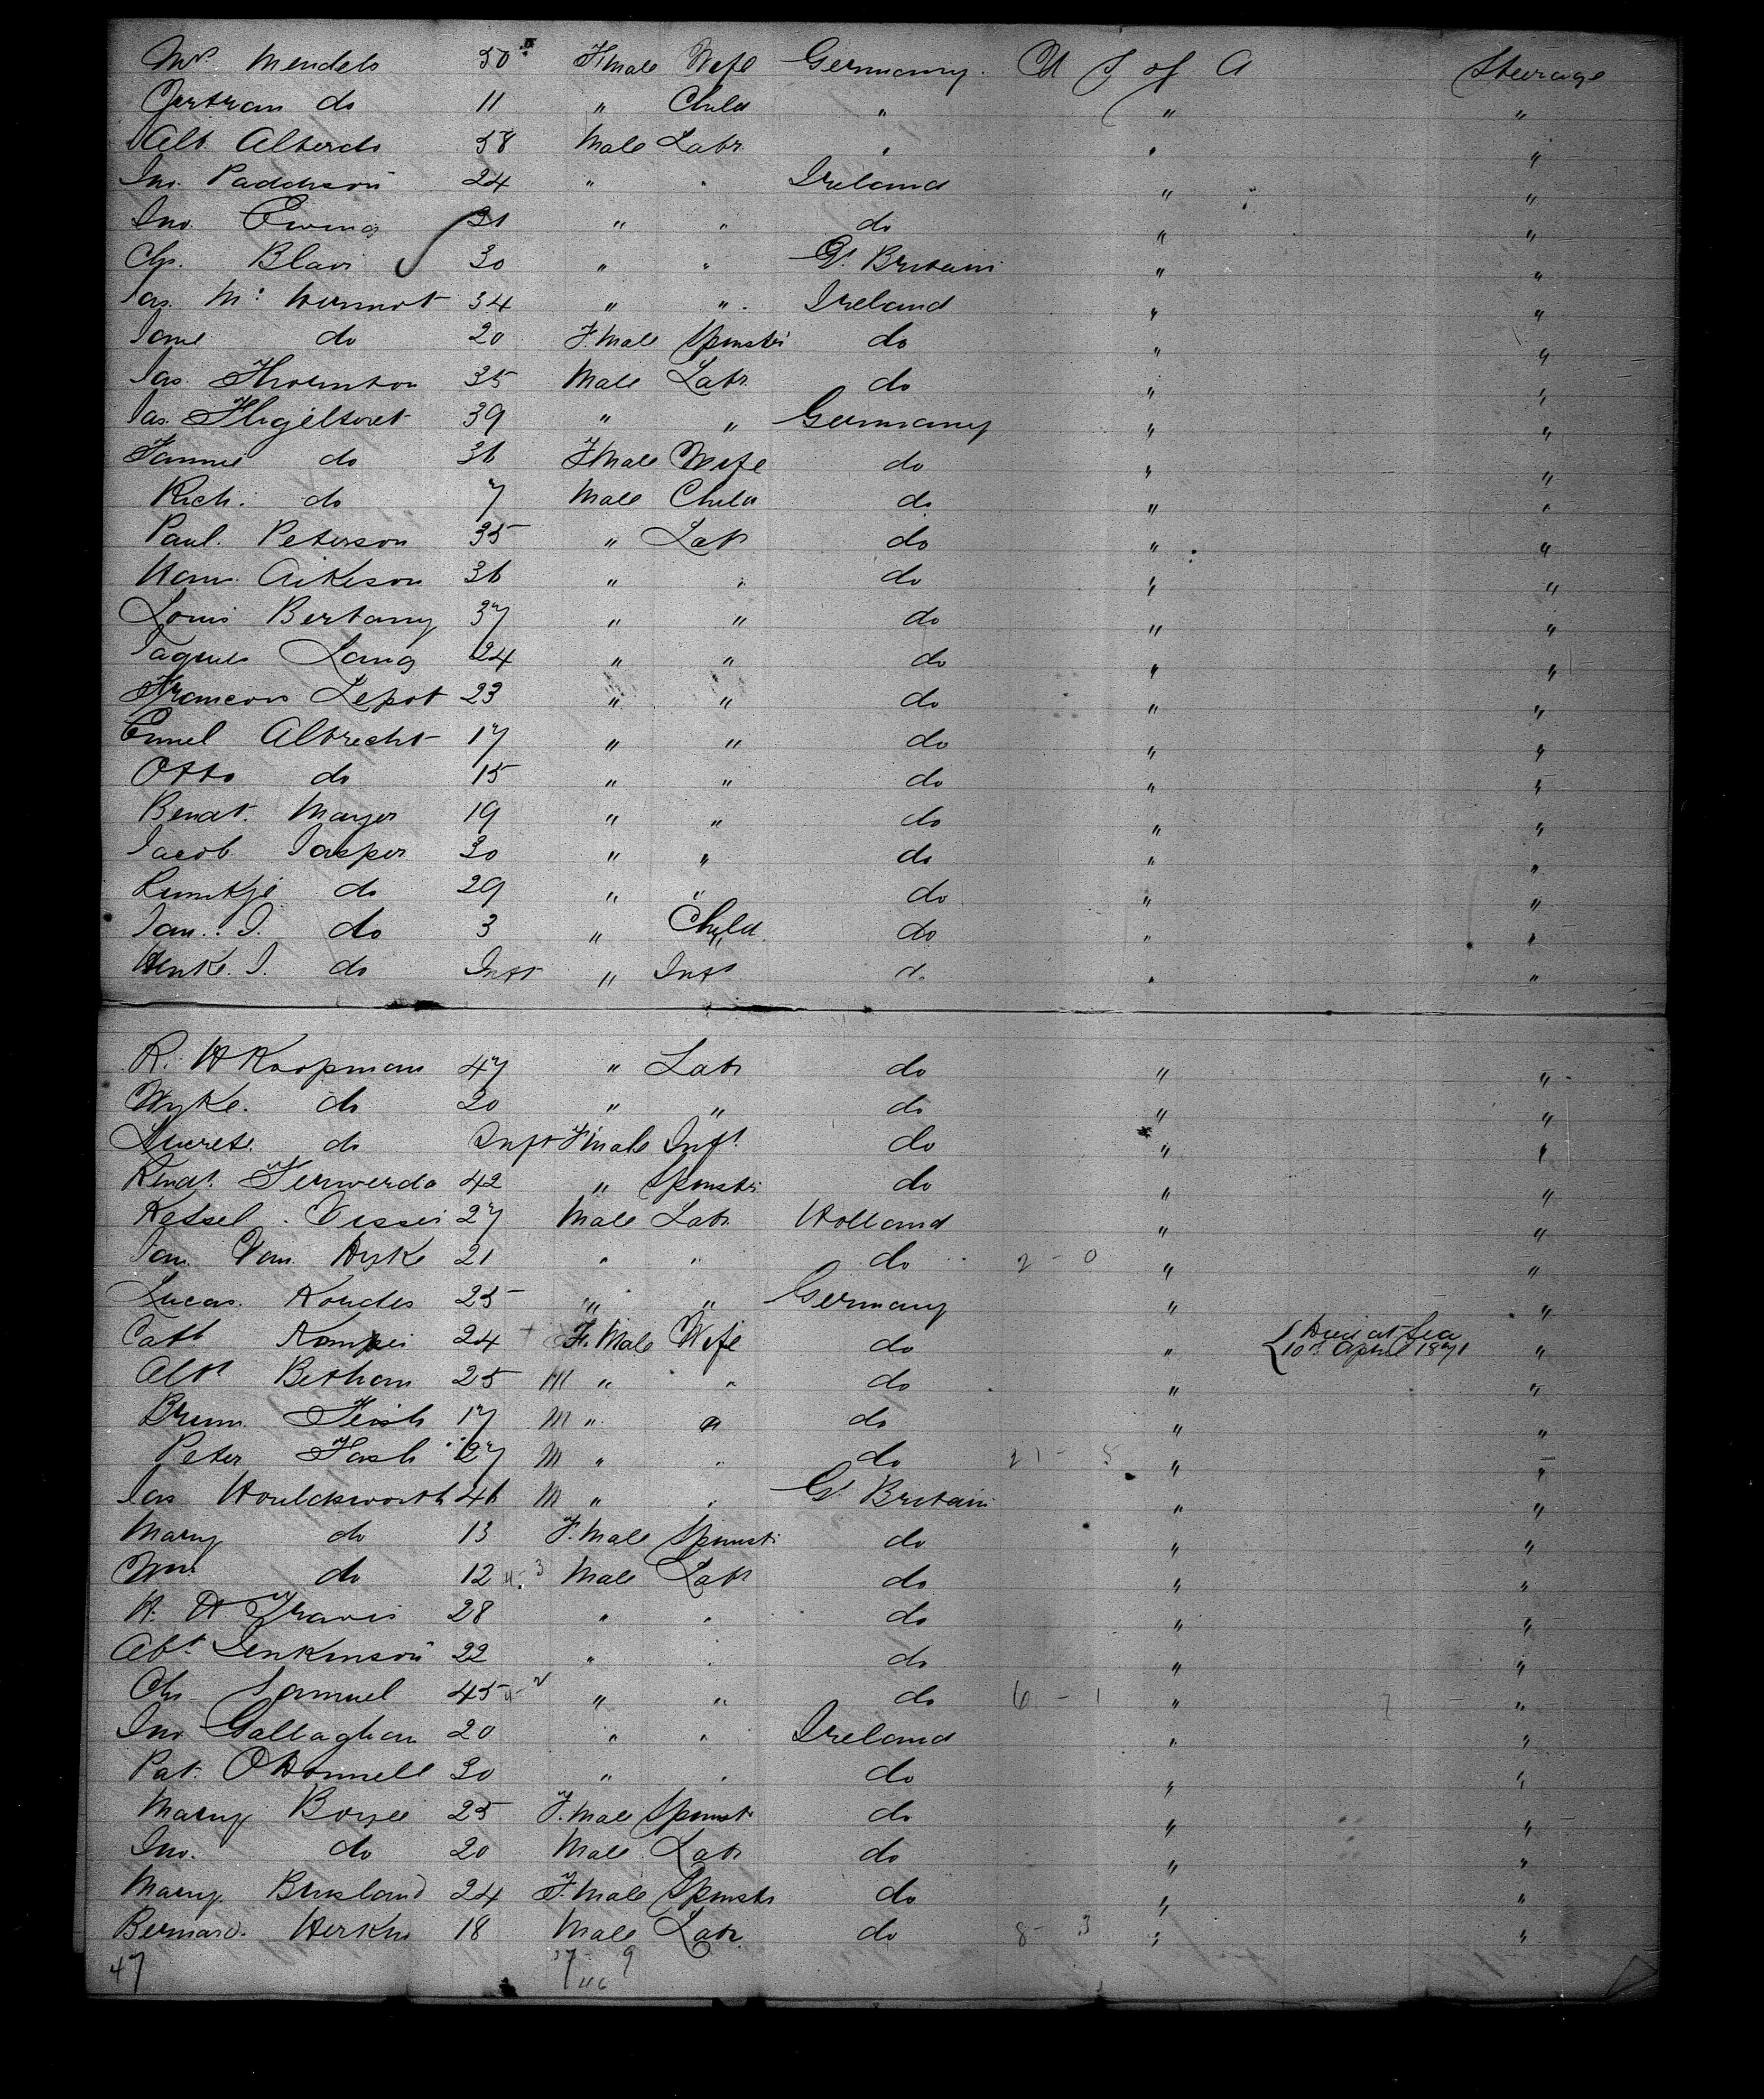 Mrs Mendels 30 F.male Wife Germany. U S of A Steerage
Gertran do 11 " Child " " "
Alb. Alberds 38 Male Labr " " "
Jno. 24 " " Ireland " "
Jno. Ewing 31 " " do " "
Chs. Blair 30 " " Gt. Britain " "
Jas. Mc. Dermot 34 " " Ireland " "
Jane do 20 F.male Spinstr do " "
Jas. Thornton 35 Male Labr do " "
Jas. 39 " " Germany " "
Fannie do 36 F.Male Wife do " "
Rich. do 7 Male Child do " "
Paul. Peterson 35 " Labr do " "
Ham. Aikeson 36 " " do " "
Louis Bertany 37 " " do " "
Jaques Lang 24 " " do " "
Francois Lepot 23 " " do " "
Emel Albrecht 17 " " do " "
Otto do 15 " " do " "
Benat. Mayer 19 " " do " "
Jacob Jasper 30 " " do " "
do 29 " " do " "
Jan. J. do 3 " Child do " "
Henke. J. do Inft " Inft do " "
R. H Koopman 47 " Labr do " "
Wyke. do 20 " " do " "
do Inft F.male Inft. do " "
Rindt. Ferwerda 42 " Spinstr do " "
Ketsel. Visser 27 Male Labr Holland " "
Jan Van Dyke 21 " " do 2 - 0 " "
Lucas. Kordes 25 " " Germany " "
Cath Kamper 24 + F.Male Wife do " { Died at Sea 10th April 1871 "
Albt Betham 25 M " " do " "
Brun. 17 M " " do " "
Peter Fash 27 M " " do 21 - 5 " "
Jas Houldsworth 46 M " " Gt Britain " "
Mary do 13 F.male Spinstr do " "
Wm. do 12 4-3 Male Labr do " "
H. H Travis 28 " " do " "
Abt. Jenkinson 22 " " do " "
Chs Samuel 45 4-2 " " do 6 - 1 " 7 "
Jno Gallaghan 20 " " Ireland " "
Pat. ODonnell 30 " " do " "
Mary Boyle 25 F.male Spinstr do " "
Jno. do 20 Male Labr do " "
Mary Brisland 24 F.male Spinstr do " "
Bernard. Herkin 18 Male Labr do 8 - 3 " "
47 37 - 9
46